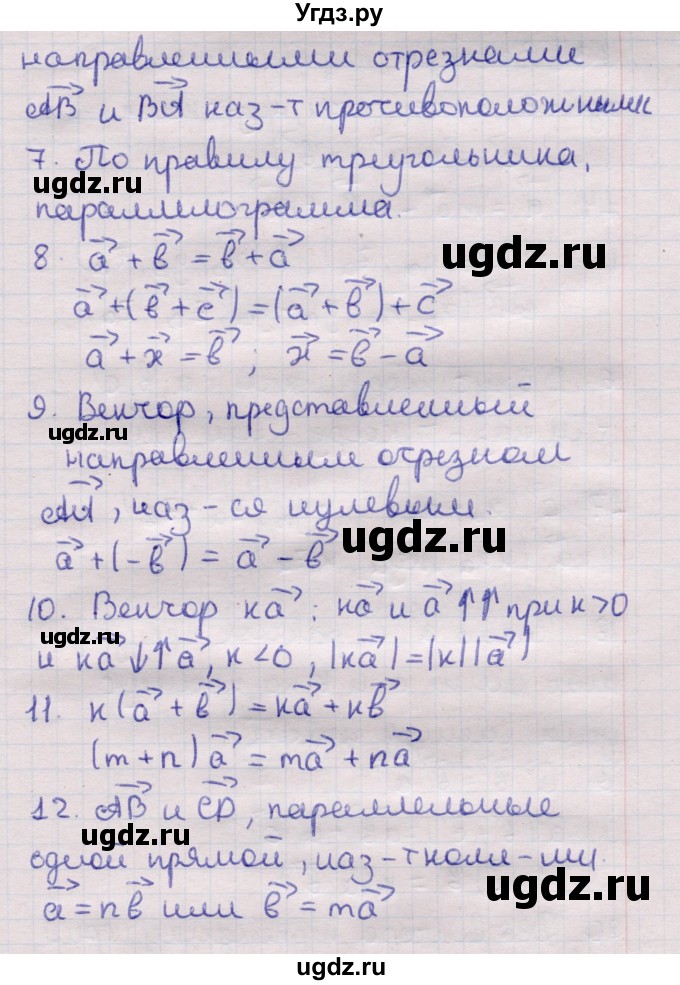 Угдз.ру
направленными отрезками
AB и BA наз-т противоположными
7. По правилу треугольника,
ugdz.ru
параллелограмма.
ugdz.ru
8. a + b = b + a
a + (b + c) = (a + b) + c
a + x = b ; x = b - a
9. Вектор, представленный
ugdz.ru
направленным отрезком
AA, наз-ся нулевым.
a + (-b) = a - b
ugdz.ru
10. Вектор ка : ка и a ↑↑ при к > 0
ugdz.ru
и ка ↓↑ a, к < 0, |ка| = |к||a|
11. к(a + b) = ка + кb
(m + n) a = ma + na
12. AB и CD, параллельные
одной прямой, наз-т колл-ми.
ugdz.ru
a = nb или b = ma
ugdz.ru